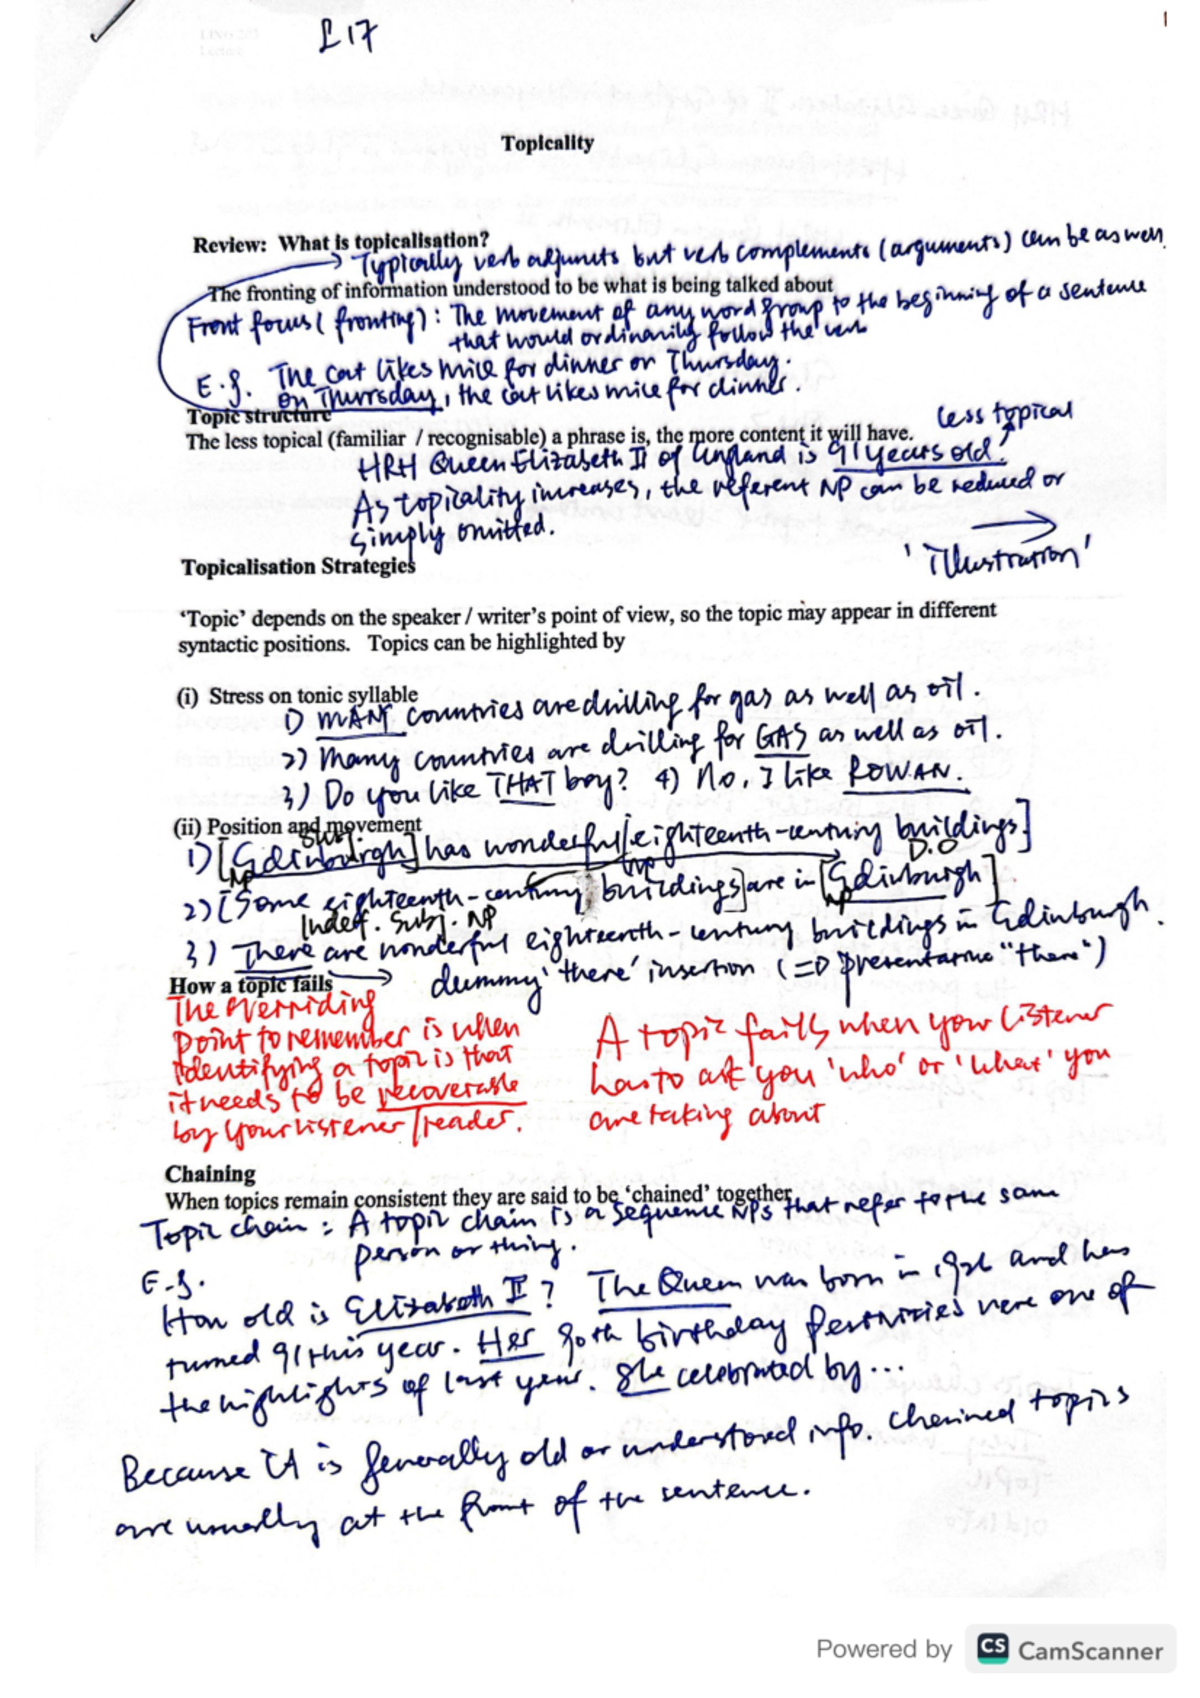 L17
Topicality
Review: What is topicalisation?
→ Typically verb adjuncts but verb complements (arguments) can be as well.
The fronting of information understood to be what is being talked about
Front focus (fronting): The movement of any word group to the beginning of a sentence
that would ordinarily follow the verb
E.g. The cat likes mice for dinner on Thursday.
On Thursday, the cat likes mice for dinner.
Topic structure
less topical
The less topical (familiar / recognisable) a phrase is, the more content it will have.
HRH Queen Elizabeth II of England is 91 years old.
As topicality increases, the referent NP can be reduced or
simply omitted.
'illustration'
Topicalisation Strategies
'Topic' depends on the speaker / writer's point of view, so the topic may appear in different
syntactic positions. Topics can be highlighted by
(i) Stress on tonic syllable
1) MANY countries are drilling for gas as well as oil.
2) Many countries are drilling for GAS as well as oil.
3) Do you like THAT boy? 4) No, I like ROWAN.
(ii) Position and movement
Subj.
1) [Edinburgh] has wonderful [eighteenth-century buildings]
NP NP D.O
2) [Some eighteenth-century buildings] are in [Edinburgh]
Indef. Subj. NP NP
3) There are wonderful eighteenth-century buildings in Edinburgh.
dummy 'there' insertion (=D presentative "there")
How a topic fails →
The overriding
point to remember is when
identifying a topic is that
it needs to be recoverable
by your listener/reader.
A topic fails when your listener
has to ask you 'who' or 'what' you
are talking about
Chaining
When topics remain consistent they are said to be 'chained' together
Topic chain: A topic chain is a sequence NPs that refer to the same
person or thing.
E.g.
How old is Elizabeth II? The Queen was born in 1926 and has
turned 91 this year. Her 90th birthday festivities were one of
the highlights of last year. She celebrated by...
Because it is generally old or understood info. chained topics
are usually at the front of the sentence.
Powered by CS CamScanner